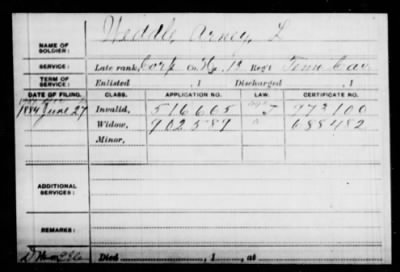 NAME OF SOLDIER: Weddle, Arney L
SERVICE: Late rank, Corp Co. H, 12 Reg't Tenn Cav
TERM OF SERVICE: Enlisted , 1 Discharged , 1
DATE OF FILING. CLASS. APPLICATION NO. LAW. CERTIFICATE NO.
1884 June 27 Invalid, 516605 J 973100
Widow, 902589 685482
Minor,
ADDITIONAL SERVICES:
REMARKS:
Died , 1 , at